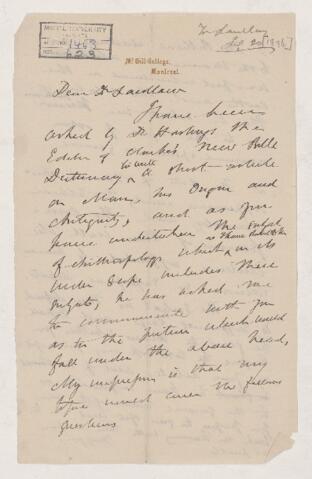 McGILL UNIVERSITY
ACC. NO. 1463
REF. 629
Dr Laidlaw
Sep 20 [1896]
McGill College,
Montreal.
Dear Dr Laidlaw
I have been
asked by Dr Hastings the
Editor of Clark's New Bible
Dictionary to write a short article
on Man, his Origin and
Antiquity, and as you
have undertaken the subject
of Anthropology which in its
wider scope includes these
subjects, he has asked me
to communicate with you
as to the portion which would
fall under the above head,
My impression is that my
would cover the following
questions